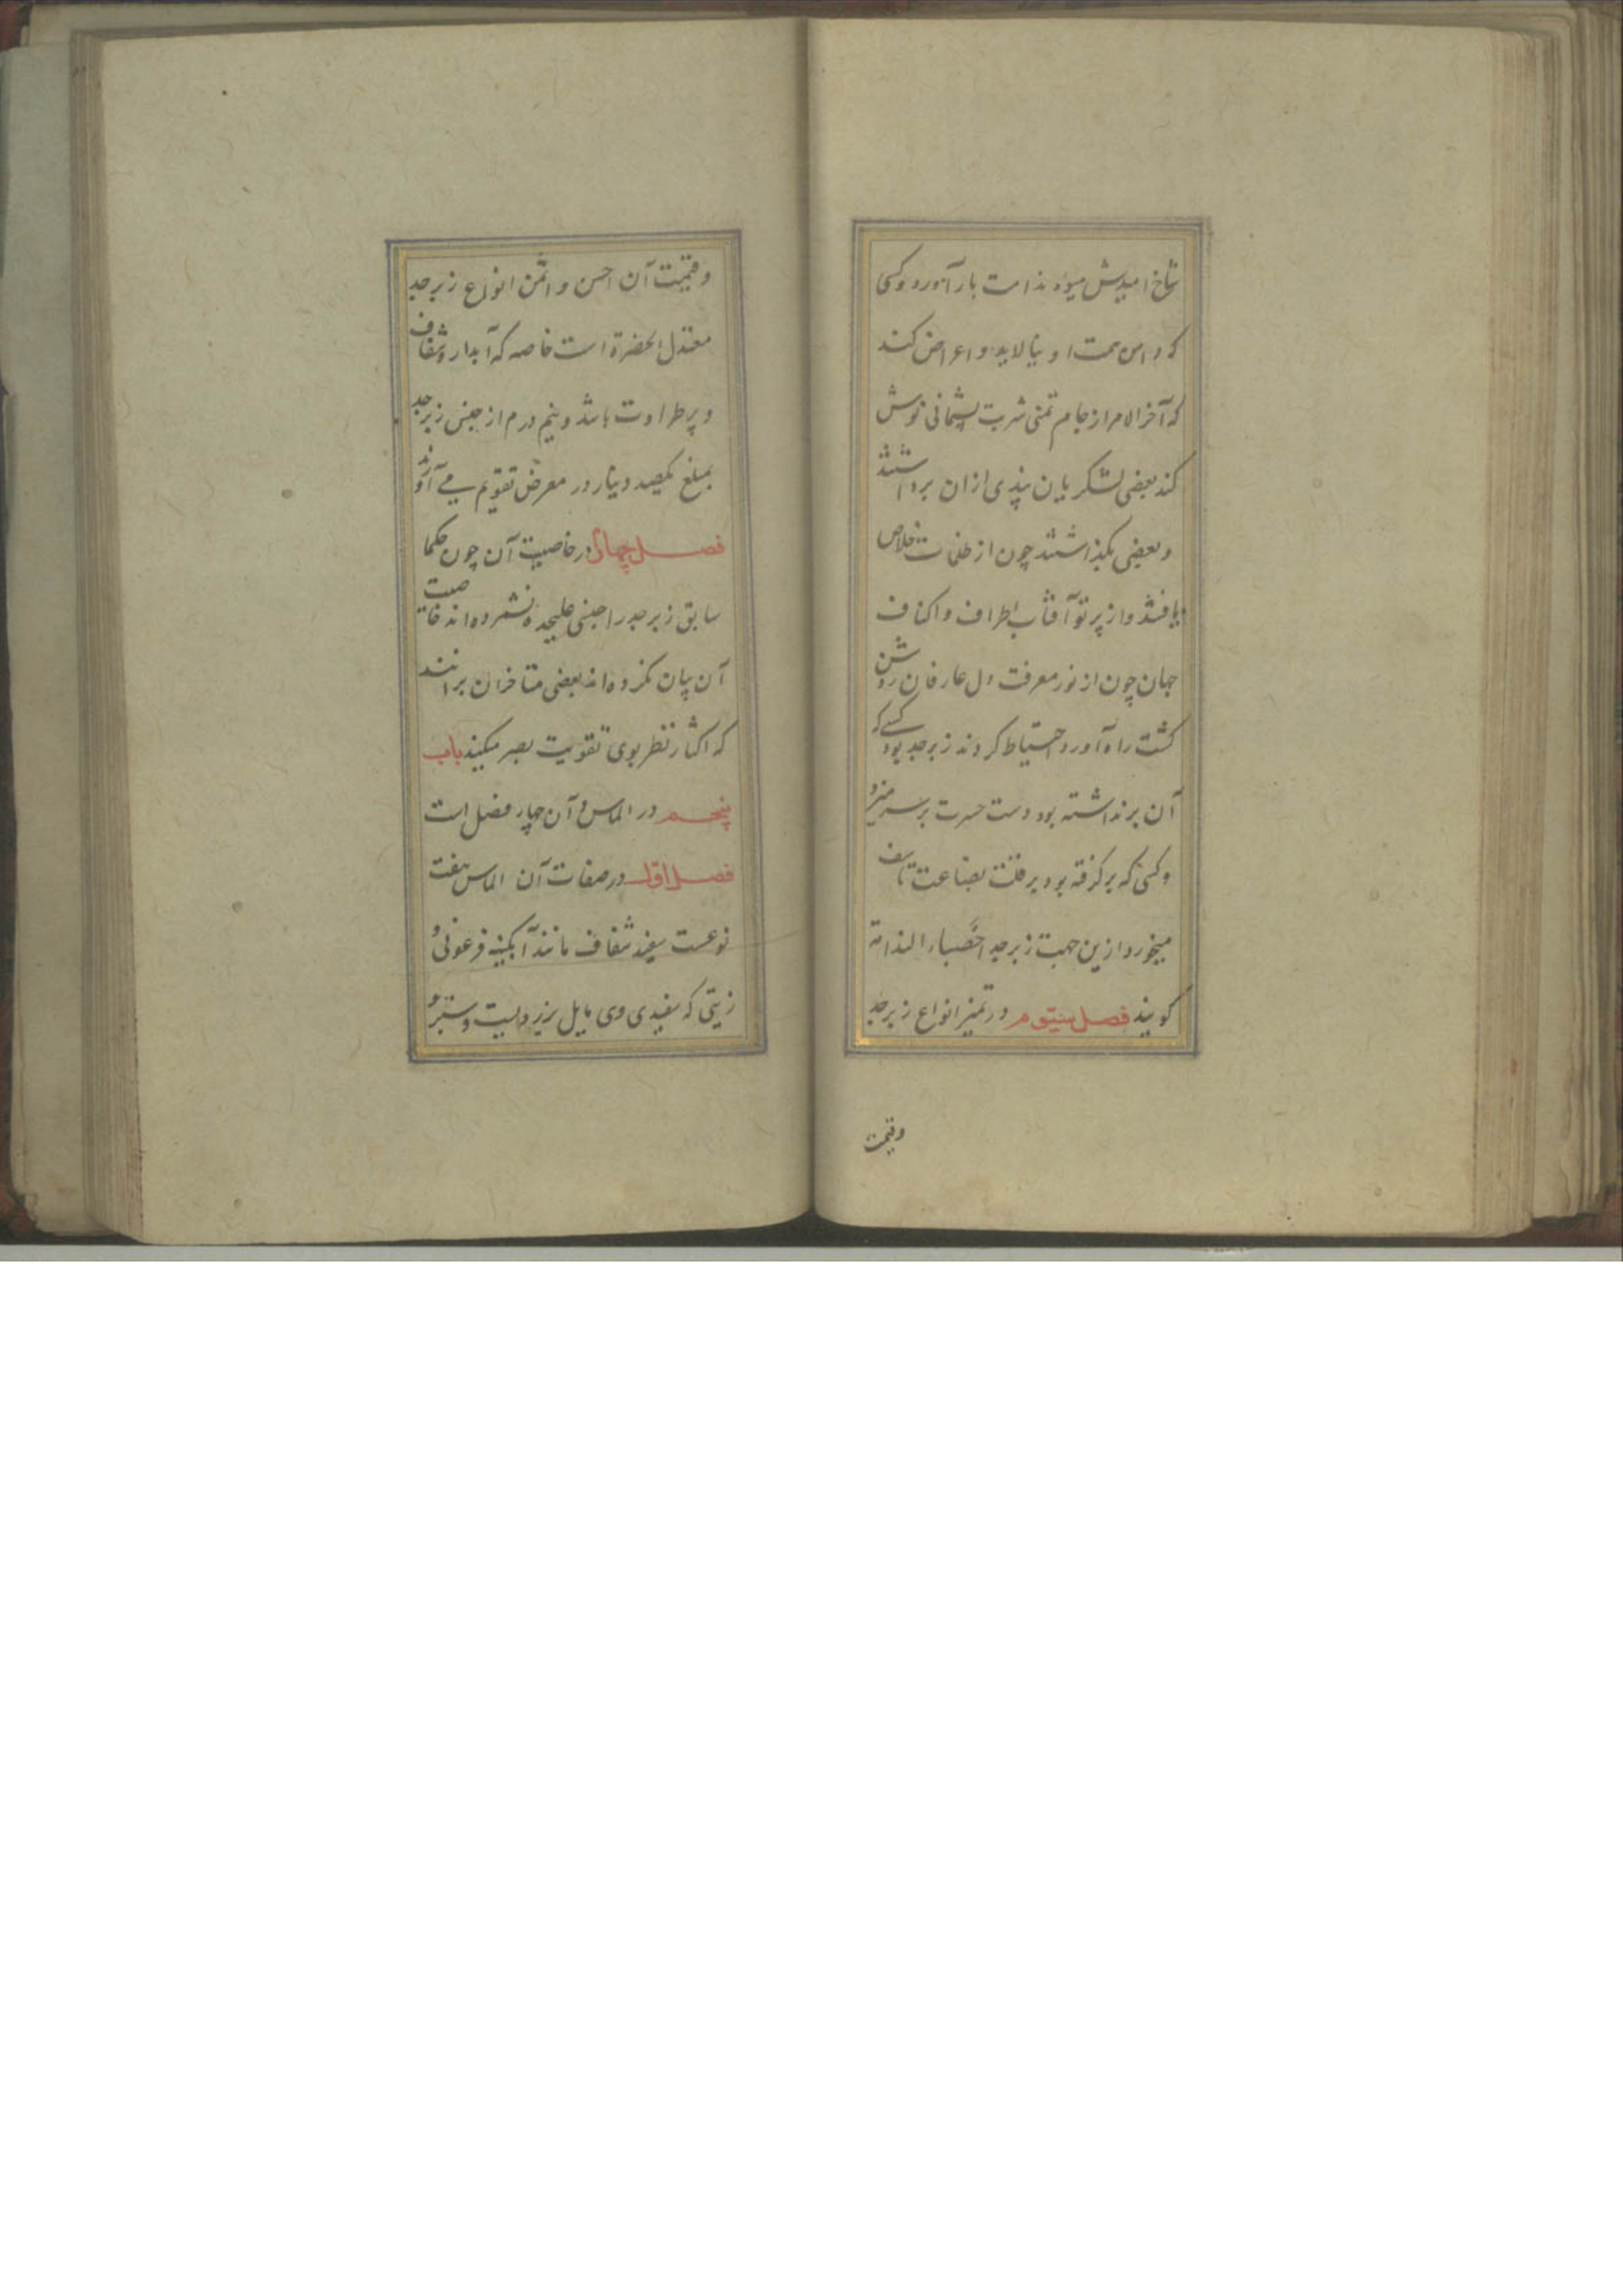 شاخ امیدش میوه ندامت بار آورد و کسی
که دامن همت او نیالاید و اعراض کند
که آخر الامر از جام تمنی شربت پشیمانی نوش
کند بعضی لشکریان پندی ازان برداشتند
و بعضی بگذاشتند چون از ظلمات خلاص
یافتند و از پرتو آفتاب اطراف و اکناف
جهان چون از نور معرفت دل عارفان روشن
گشت راه آورد احتیاط کردند زبرجد بود کسی که
آن برنداشته بود دست حسرت بر سر میزد و
و کسی که برگرفته بود بر قلت بضاعت تاسف
میخورد ازین جهت زبرجد احصباء الندامة
گویند فصل سیوم در تمیز انواع زبرجد
وقیمت
و قیمت آن احسن و اثمن انواع زبرجد
معتدل الخضرة است خاصه که آبدار و شفاف
و پر طراوت باشد و نیم درم از جنس زبرجد
بمبلغ یکصد دینار در معرض تقویم می آورند
فصل چهارم در خاصیت آن چون حکما
سابق زبرجد را جنسی علیحده نشمرده اند خاصیت
آن بیان نکرده اند بعضی متاخران برانند
که اکثار نظر بوی تقویت بصر میکند باب
پنجم در الماس و آن چهار فصل است
فصل اول در صفات آن الماس هفت
نوعست سفید شفاف مانند آبگینه فرعونی و
زیتی که سفیدی وی مایل بزردیست و سبز و